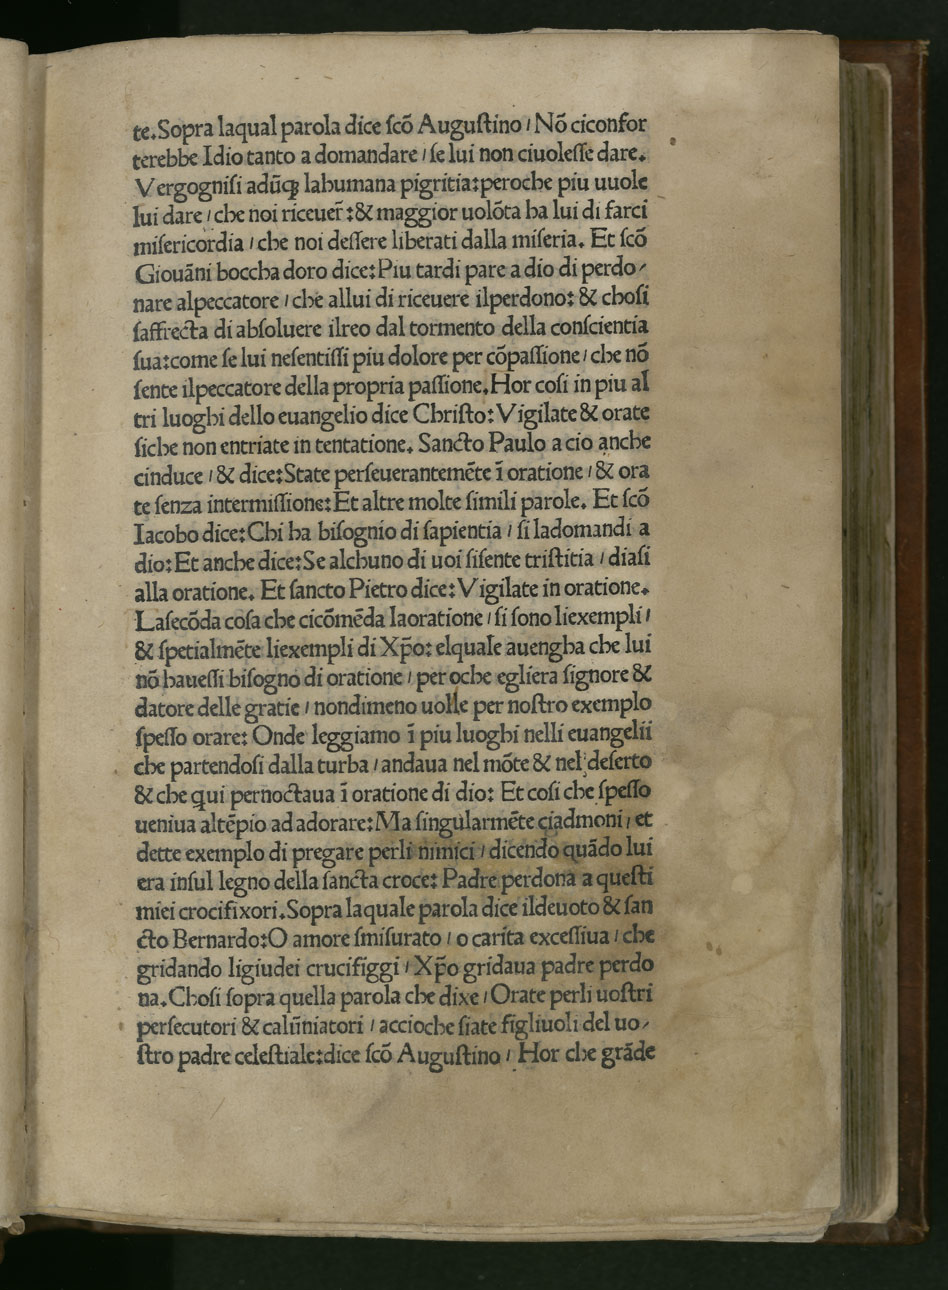 te.Sopra laqual parola dice ſcō Auguſtino / Nō ciconfor
terebbe Idio tanto a domandare / ſe lui non ciuoleſſe dare.
Vergogniſi adūꝙ lahumana pigritia:peroche piu uuole
lui dare / che noi riceuer̄ :& maggior uolōta ha lui di farci
miſericordia / che noi deſſere liberati dalla miſeria. Et ſcō
Giouāni boccha doro dice:Piu tardi pare a dio di perdo/
nare alpeccatore / che allui di riceuere ilperdono: & choſi
ſaffrecta di abſoluere ilreo dal tormento della conſcientia
ſua:come ſe lui neſentiſſi piu dolore per cōpaſſione / che nō
ſente ilpeccatore della propria paſſione.Hor coſi in piu al
tri luoghi dello euangelio dice Chriſto:Vigilate & orate
ſiche non entriate in tentatione. Sancto Paulo a cio anche
cinduce / & dice:State perſeuerantemēte ī oratione / & ora
te ſenza intermiſſione:Et altre molte ſimili parole. Et ſcō
Iacobo dice:Chi ha biſognio di ſapientia / ſi ladomandi a
dio:Et anche dice:Se alchuno di uoi ſiſente triſtitia / diaſi
alla oratione. Et ſancto Pietro dice:Vigilate in oratione.
Laſecōda coſa che cicōmēda laoratione / ſi ſono liexempli /
& ſpetialmēte liexempli di Xp̄o: elquale auengha che lui
nō haueſſi biſogno di oratione / per oche egliera ſignore &
datore delle gratie / nondimeno uolle per noſtro exemplo
ſpeſſo orare: Onde leggiamo ī piu luoghi nelli euangelii
che partendoſi dalla turba / andaua nel mōte & nel deſerto
& che qui pernoctaua ī oratione di dio: Et coſi che ſpeſſo
ueniua altēpio ad adorare:Ma ſingularmēte ciadmoni / et
dette exemplo di pregare perli nimici / dicendo quādo lui
era inſul legno della ſancta croce: Padre perdona a queſti
miei crocifixori.Sopra laquale parola dice ildeuoto & ſan
cto Bernardo:O amore ſmiſurato / o carita exceſſiua / che
gridando ligiudei crucifiggi / Xp̄o gridaua padre perdo
na.Choſi ſopra quella parola che dixe / Orate perli uoſtri
perſecutori & calūniatori / accioche ſiate figliuoli del uo/
ſtro padre celeſtiale:dice ſcō Auguſtino / Hor che grāde